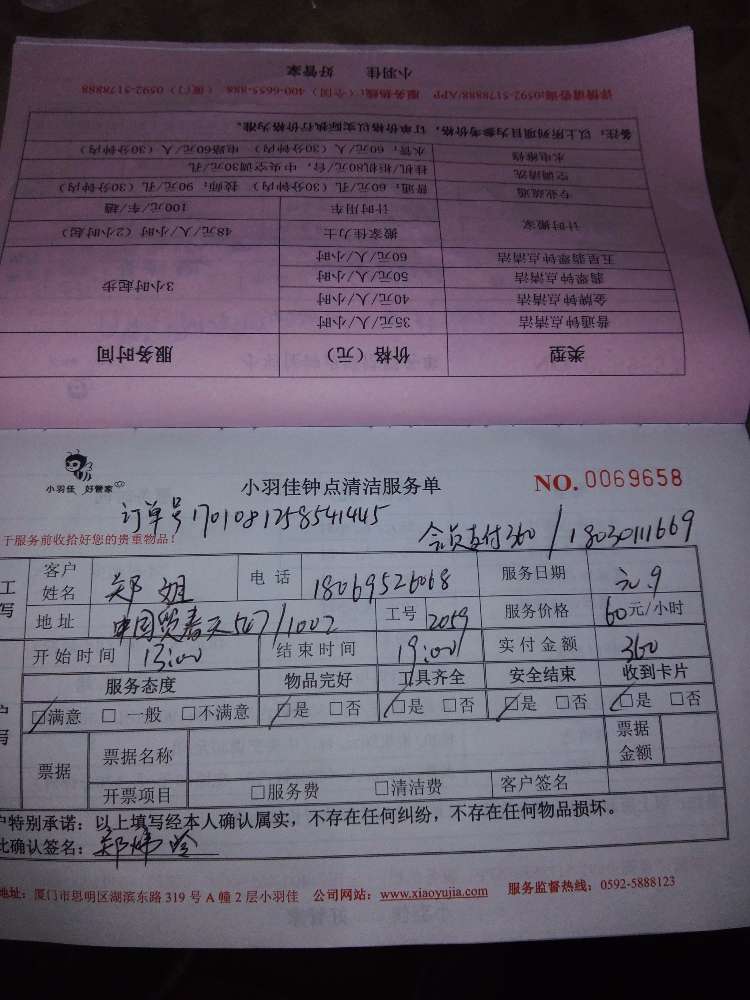 小羽佳 好管家
详情请咨询:0592-5178888/APP 服务热线:(全国)400-6655-888 (厦门)0592-5178888
备注:以上所列项目为参考价格,订单价格以实际执行价格为准。
水电维修 水管:60元/人(30分钟内) 电路60元/人(30分钟内)
空调清洗 挂机/柜机80元/台,中央空调30元/孔
专业疏通 普通:60元/孔(30分钟内) 技师:90元/孔(30分钟内)
计时搬家 计时用车 100元/车/趟
搬家佳力士 48元/人/小时(2小时起)
五星翡翠钟点清洁 60元/人/小时
翡翠钟点清洁 50元/人/小时 3小时起步
金牌钟点清洁 40元/人/小时
普通钟点清洁 35元/人/小时
类型 价格(元) 服务时间
小羽佳 好管家
小羽佳钟点清洁服务单 NO.0069658
订单号1701081258541445
于服务前收拾好您的贵重物品! 会员支付360/18030111669
工 客户姓名 郑姐 电话 18069526068 服务日期 元.9
写 地址 547/1002 工号 2059 服务价格 60元/小时
开始时间 13:00 结束时间 19:00 实付金额 360
服务态度 物品完好 工具齐全 安全结束 收到卡片
户 □满意 □一般 □不满意 □是 □否 □是 □否 □是 □否 □是 □否
写 票据 票据名称 票据金额
开票项目 □服务费 □清洁费 客户签名
户特别承诺:以上填写经本人确认属实,不存在任何纠纷,不存在任何物品损坏。
此确认签名:郑炜玲
地址:厦门市思明区湖滨东路319号A幢2层小羽佳 公司网站:www.xiaoyujia.com 服务监督热线:0592-5888123